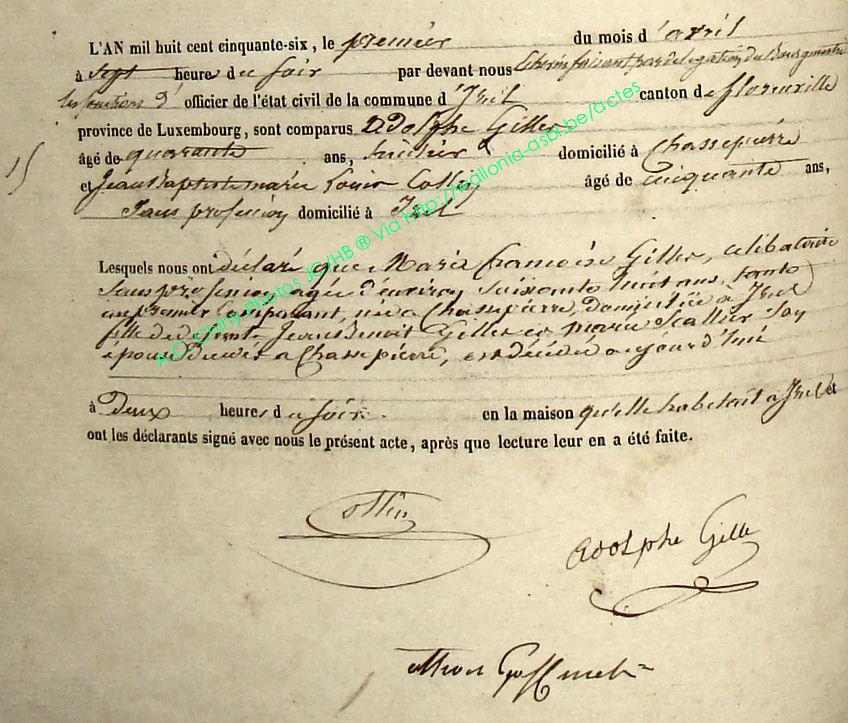 L'AN mil huit cent cinquante-six, le premier du mois d'avril
à sept heures du soir par devant nous Echevin faisant par délégation du Bourgmestre
les fonctions d'officier de l'état civil de la commune d'Izel canton de florenville
province de Luxembourg, sont comparus Adolphe Gilles
âgé de quarante ans, domicilié à Chassepierre
15
et Jean Baptiste marie Louis Collin âgé de cinquante ans,
Sans profession domicilié à Izel
Lesquels nous ont déclaré que Marie Françoise Gilles, célibataire
Sans profession, agée d'environ Soixante huit ans, tante
au premier Comparant, née à Chassepierre, domiciliée à Izel
fille de defunts Jean Benoit Gilles et marie Scallier Son
épouse décédés à Chassepierre, est décédée aujourd'hui
à Deux heures du soir en la maison qu'elle habitait à Izel et
ont les déclarants signé avec nous le présent acte, après que lecture leur en a été faite.
Collin
Adolphe Gille
Goffinet
A.O. Chiny Photos JG/HB ® Via http://wallonia-asbl.be/actes